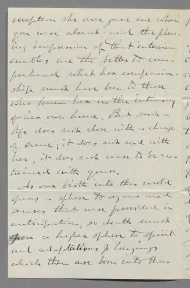 reception she once gave me when
you were absent and the pleas
ing impression of that interview
enables me the better to com
prehend what her companion
ship must have been to those
who knew her in the intimacy
of her own home. But such a
life does not close with a change
of scene; it does not end with
her, it does not cease to be en
twined with yours.
As our birth into this world
opens a sphere to organs and
senses that were provided in
anticipation, so death must
open a higher sphere to spirit
and adaptations & longings
which then are born into their